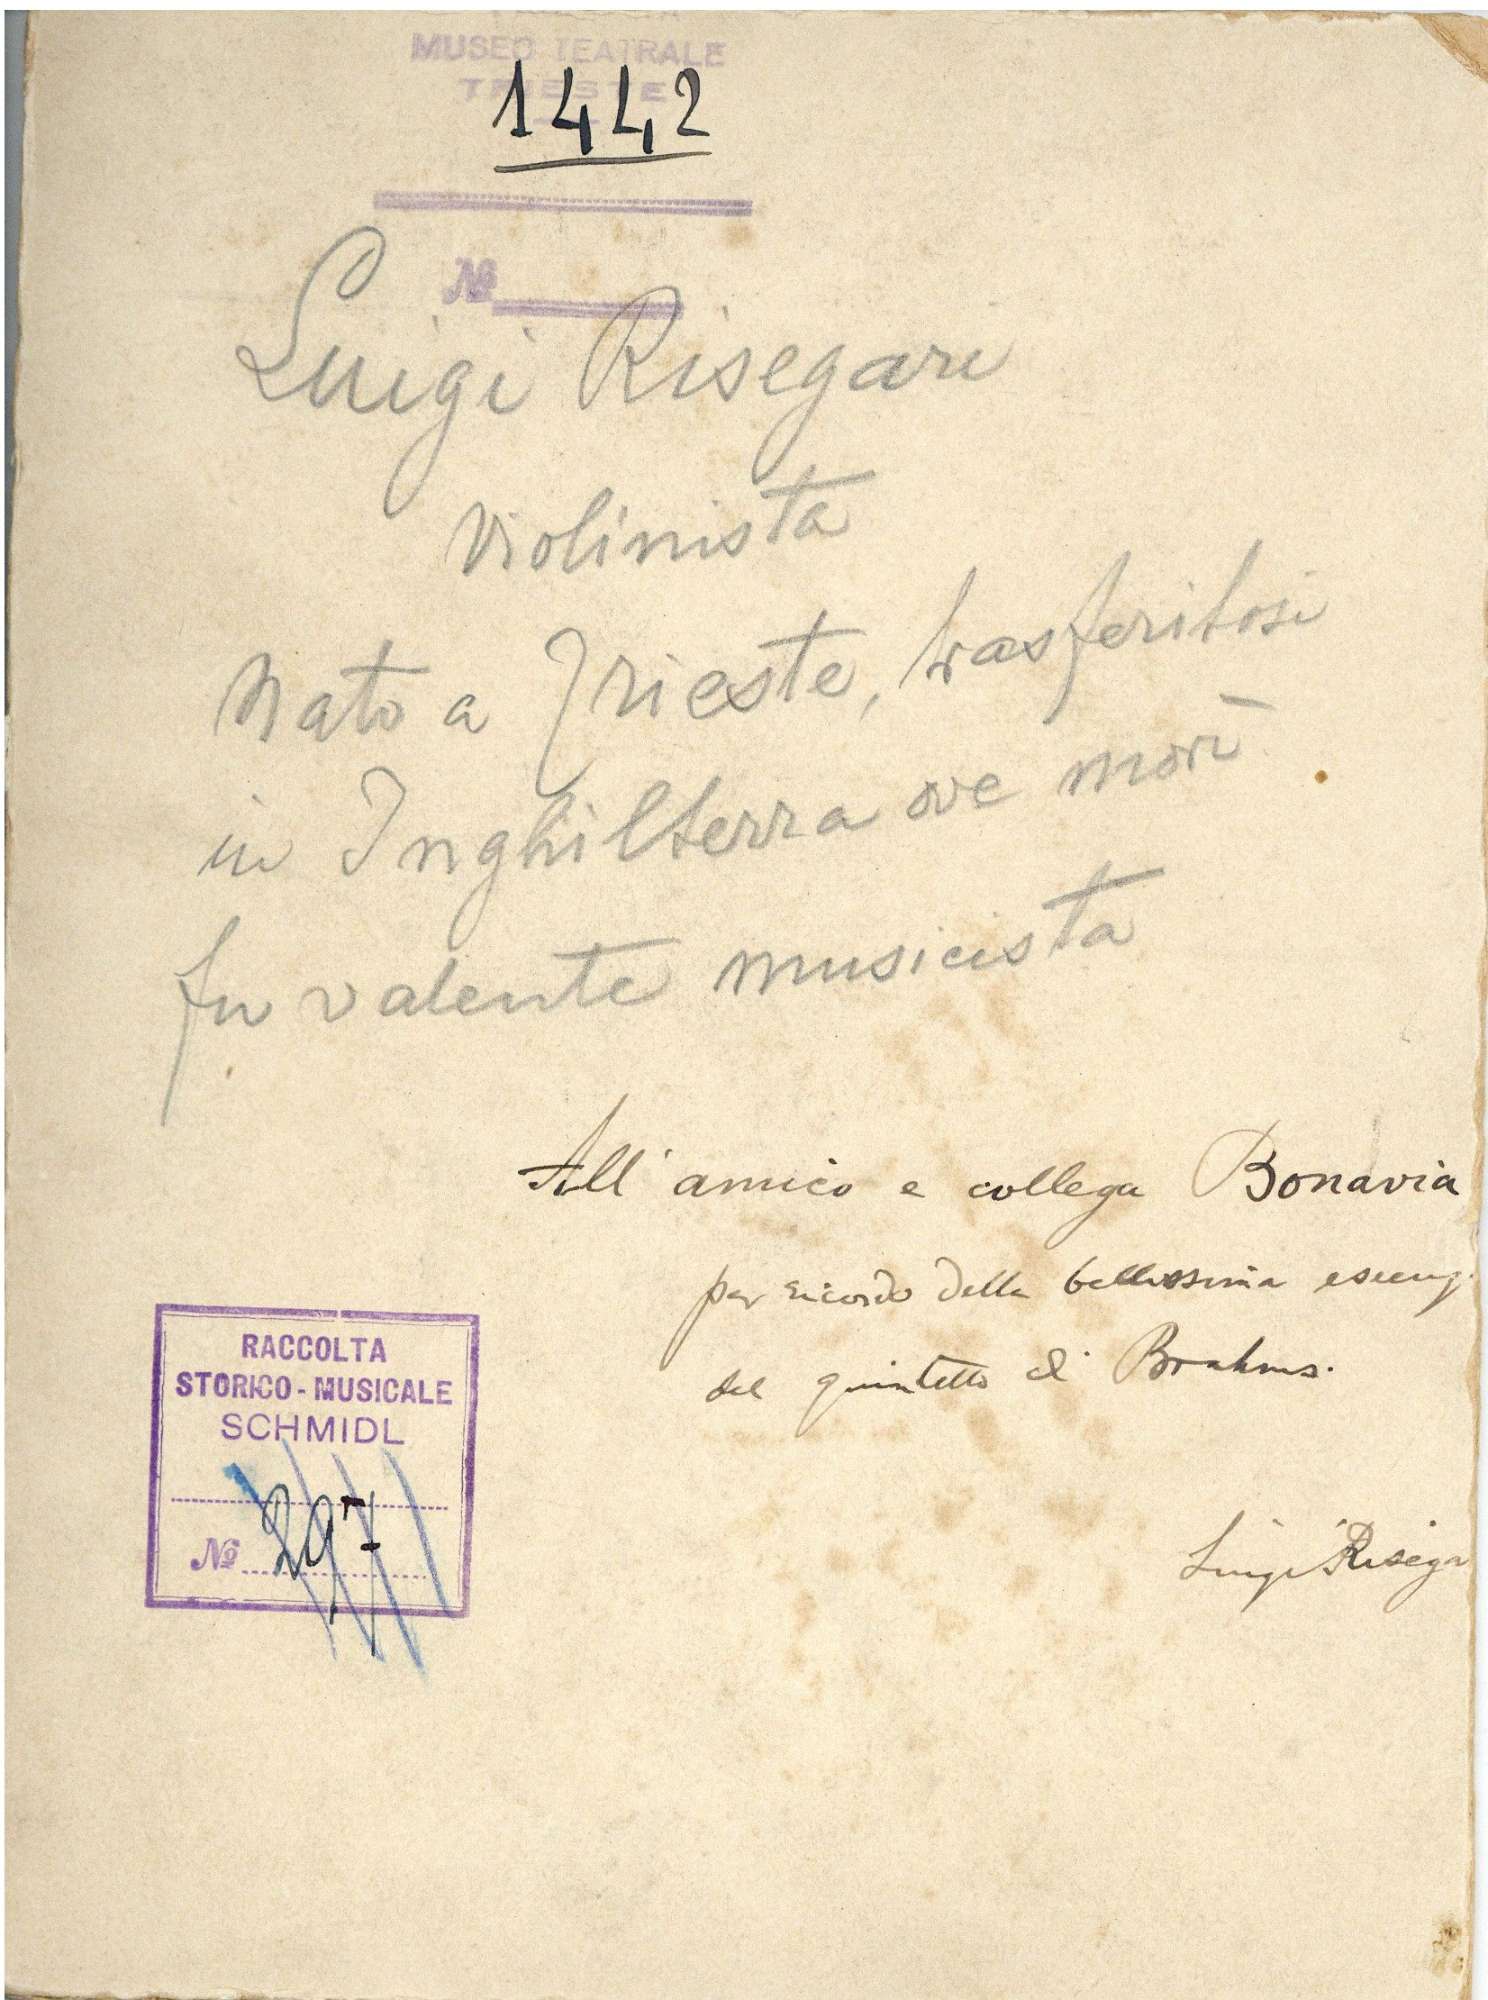 MUSEO TEATRALE
TRIESTE
1442
No
Luigi Risegari
violinista
nato a Trieste, trasferitosi
in Inghilterra ove morì
fu valente musicista
All'amico e collega Bonavia
per ricordo della bellissima
del quintetto di Brahms.
Luigi Risega
RACCOLTA
STORICO-MUSICALE
SCHMIDL
No 297